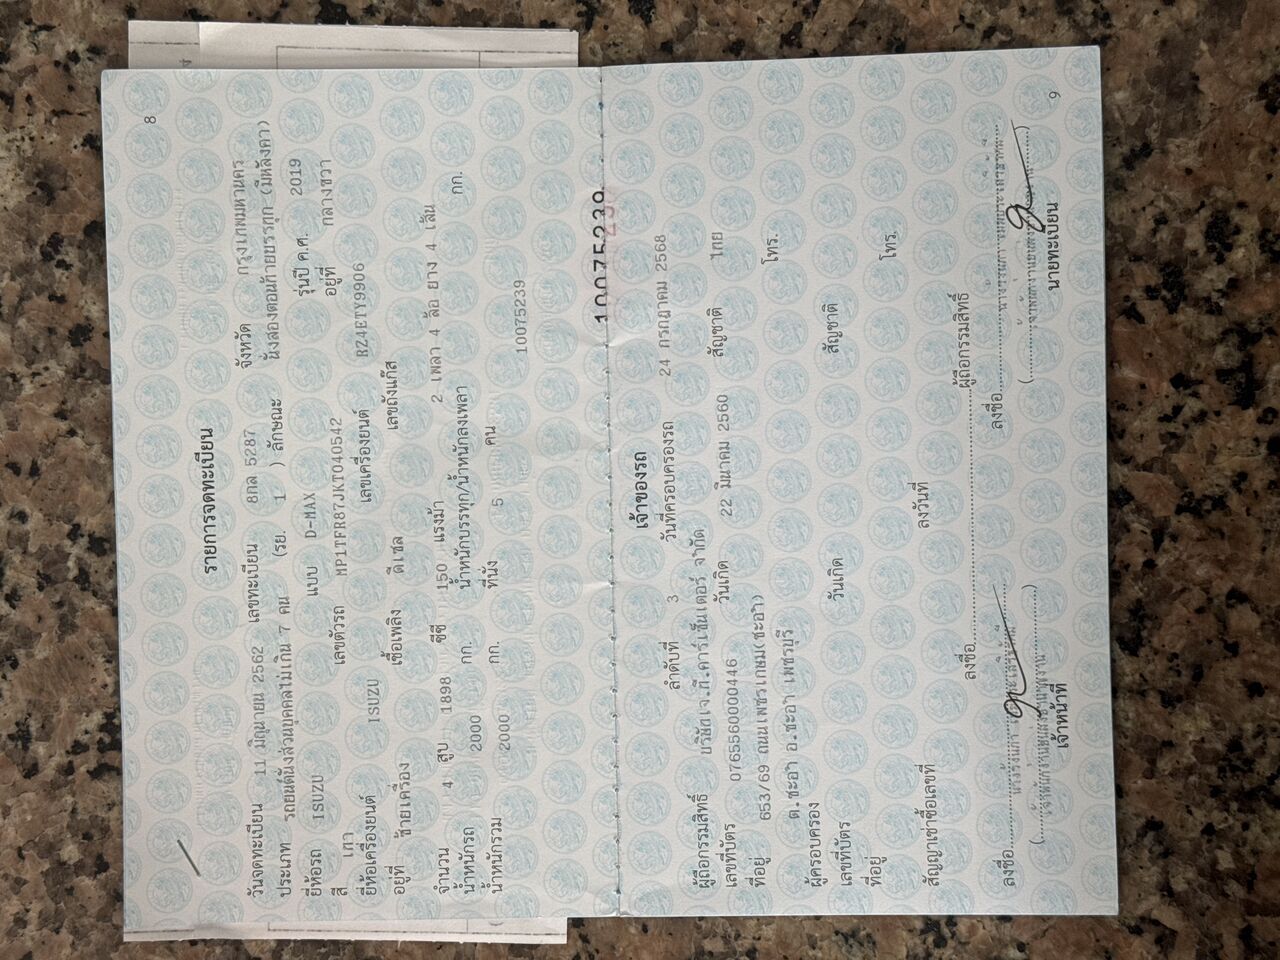 8
รายการจดทะเบียน
วันจดทะเบียน 11 มิถุนายน 2562 เลขทะเบียน 8กล 5287 จังหวัด กรุงเทพมหานคร
ประเภท รถยนต์นั่งส่วนบุคคลไม่เกิน 7 คน (รย. 1 ) ลักษณะ นั่งสองตอนท้ายบรรทุก (มีหลังคา)
ยี่ห้อรถ ISUZU แบบ D-MAX รุ่นปี ค.ศ. 2019
สี เทา เลขตัวรถ MP1TFR87JKT040542 อยู่ที่ กลางขวา
ยี่ห้อเครื่องยนต์ ISUZU เลขเครื่องยนต์ RZ4ETY9906
อยู่ที่ ซ้ายเครื่อง เชื้อเพลิง ดีเซล เลขถังแก๊ส
จำนวน 4 สูบ 1898 ซีซี 150 แรงม้า 2 เพลา 4 ล้อ ยาง 4 เส้น
น้ำหนักรถ 2000 กก. น้ำหนักบรรทุก/น้ำหนักลงเพลา กก.
น้ำหนักรวม 2000 กก. ที่นั่ง 5 คน 10075239
10075239
เจ้าของรถ
ลำดับที่ 3 วันที่ครอบครองรถ 24 กรกฎาคม 2568
ผู้ถือกรรมสิทธิ์ บริษัทเจ.ที.คาร์เซ็นเตอร์ จำกัด
เลขที่บัตร 0765560000446 วันเกิด 22 มีนาคม 2560 สัญชาติ ไทย
ที่อยู่ 653/69 ถนนเพชรเกษม(ชะอำ) โทร.
ต.ชะอำ อ.ชะอำ เพชรบุรี
ผู้ครอบครอง
เลขที่บัตร วันเกิด สัญชาติ
ที่อยู่ โทร.
สัญญาเช่าซื้อเลขที่ ลงวันที่
ลงชื่อ ผู้ถือกรรมสิทธิ์
ลงชื่อ ลงชื่อ
เจ้าหน้าที่ นายทะเบียน
9